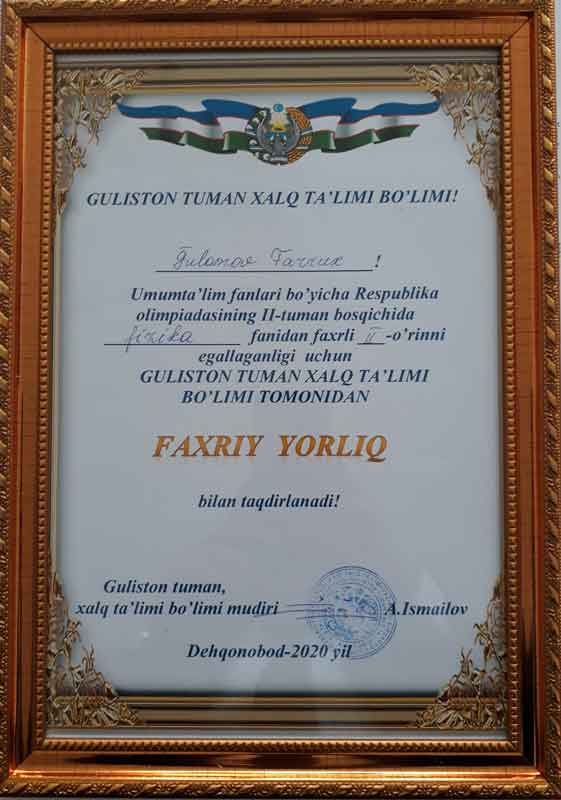 GULISTON TUMAN XALQ TA'LIMI BO'LIMI!
Farrux!
Umumta'lim fanlari bo'yicha Respublika
olimpiadasining II-tuman bosqichida
fizika fanidan faxrli II-o'rinni
egallaganligi uchun
GULISTON TUMAN XALQ TA'LIMI
BO'LIMI TOMONIDAN
FAXRIY YORLIQ
bilan taqdirlanadi!
Guliston tuman,
xalq ta'limi bo'limi mudiri A.Ismailov
Dehqonobod-2020 yil